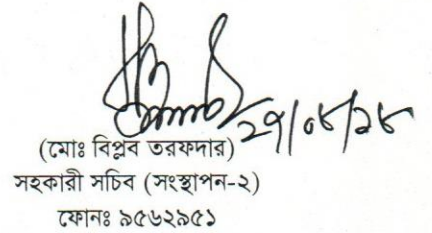 ২৭/০৮/১৮
(মোঃ বিপ্লব তরফদার)
সহকারী সচিব (সংস্থাপন-২)
ফোনঃ ৯৫৬২৯৫১